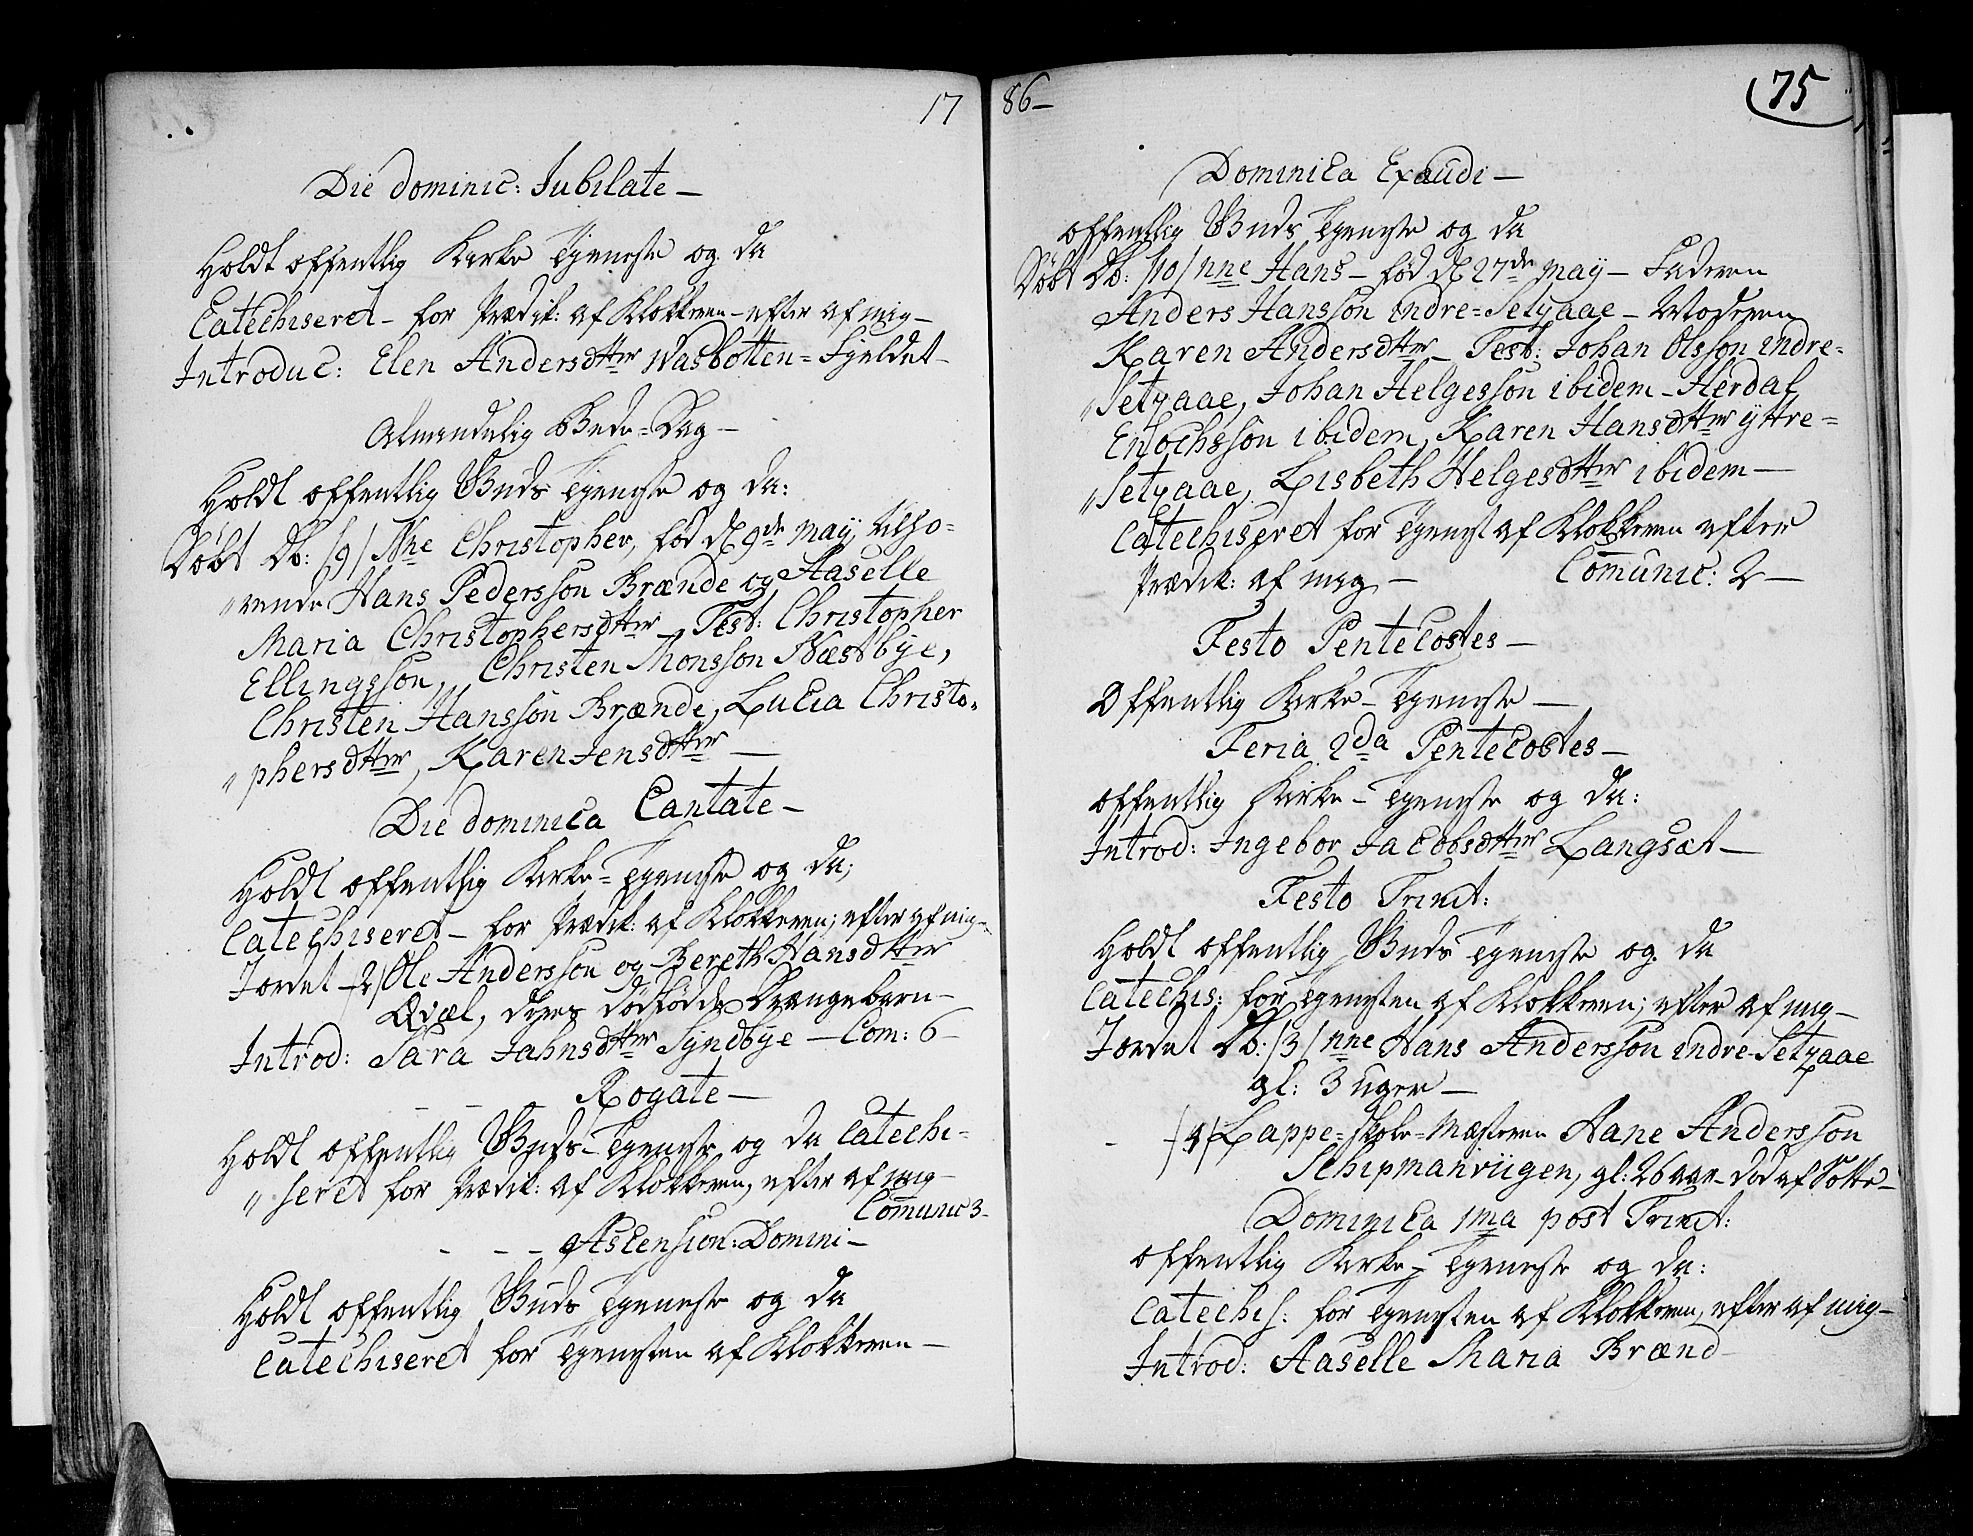 17
Die dominic: Jubilate —
Holdt offentlig Kirke Tjeneste og da
Catechiseret — for Prædik: af Klokkeren — efter af mig —
Introduc: Elen Andersdtter Wasbotten = Fjeldet —
Almindelig Bede = Dag —
Holdt offentlig Guds Tjeneste og da:
Døbt Db: /9/ Nne Christopher, fød d 9de May,
Hans Pedersson Brænde og Aaselle
Maria Christophersdtter Test: Christopher
Ellingsson, Christen Monsson Næstbye,
Christen Hansson Brænde, Lucia Christo„
„phersdtter, Karen Jensdtter —
Die dominica Cantate —
Holdt offentlig Kirke = Tjeneste og da;
Catechiseret — for Prædik: af Klokkeren; efter af mig —
Jordet — /2/ Ole Andersson og Bereth Hansdtter
Qvæl, dødfødde Drængebarn —
Introd: Sara Jahnsdtter Syndbye — Com: 6 —
Rogate —
Holdt offentlig Guds = Tjeneste og da Catechi =
„seret for Prædik: af Klokkeren, efter af mig —
Comunic 3 —
Ascension: Domini —
Holdt offentlig Guds Tjeneste og da
Catechiseret for Tjenesten af Klokkeren —
86 —
75
Dominica Exaudi —
offentlig Guds Tjeneste og da
Døbt Db: /10/ nne Hans — fød d 27de May — Faderen
Anders Hansson indre = Setzaae — Moderen
Karen Andersdtter — Test: Johan Olsson indre =
„Setzaae, Johan Helgesson ibidem — Herdal
Enochsson ibidem, Karen Hansdtter yttre =
„Setzaae, Lisbeth Helgesdtter ibidem —
Catechiseret for Tjenest af Klokkeren efter
Prædik: af mig — Comunic: 2 —
Festo Pentecostes —
Offentlig Kirke = Tjeneste —
Feria 2da Pentecostes —
offentlig Kirke = Tjeneste og da:
Introd: Ingebor Jacobsdtter Langsæt —
Festo Trinit:
Holdt offentlig Guds Tjeneste og da
Catechis: for Tjenesten af Klokkeren; efter af mig —
Jordet Db: /3/ nne Hans Andersson indre Setzaae
gl: 3 uger —
/4/ Lappe = Skole = Mesteren Aane Andersson
Schipmanviigen, gl: 26 aar — død af
Dominica 1ma post Trinit:
offentlig Kirke = Tjeneste og da:
Catechis: for Tjenesten af Klokkeren, efter af mig —
Introd: Aaselle Maria Brænd —